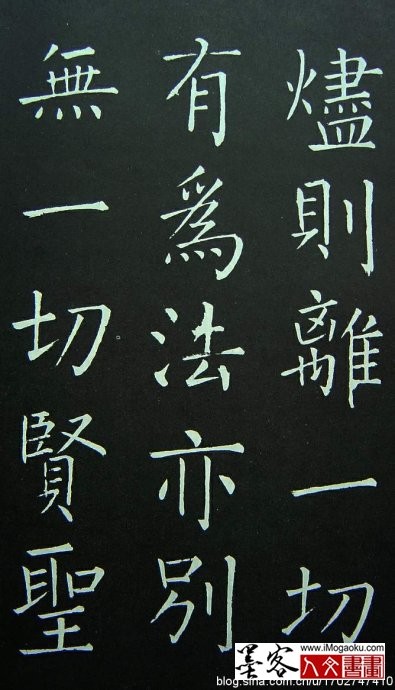 燼則離一切
有爲法亦別
無一切賢聖
墨客
人文書畫
www.iMogaoku.com
blog.sina.com.cn/u/1702747410